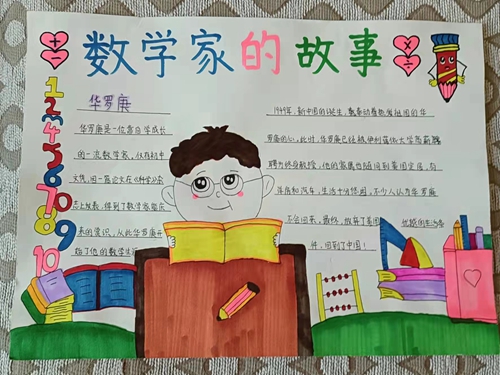 数学家的故事
+
−
×
÷
1
2
3
4
5
6
7
8
9
10
华罗庚
华罗庚是一位靠自学成长
的一流数学家,仅有初中
文凭,因一篇论文在《科学》杂
志上发表,得到了数学家熊庆
来的赏识,从此华罗庚开
始了他的数学生
1949年,新中国的诞生,牵动着热爱祖国的华
罗庚的心。此时,华罗庚已经被伊利诺依大学
聘为终身教授,他的家属也随同到美国定居,有
洋房和汽车,生活十分优越,不少人认为华罗庚
不会回来,然而,放弃了美国 优越的生活条
件,回到了中国!